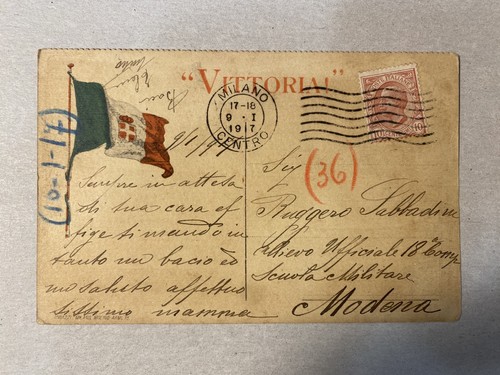 "VITTORIA!"
Baci
MILANO
17-18
9 · I
1917
CENTRO
9/1/917
(10-1-17)
(36)
Sempre in attesa
di tua cara ef
fige ti mando in
tanto un bacio ed
mo saluto affettuo
sissimo mamma
Sig
Ruggero Sabbadini
Allievo Ufficiale 18 Comp
Scuola Militare
Modena